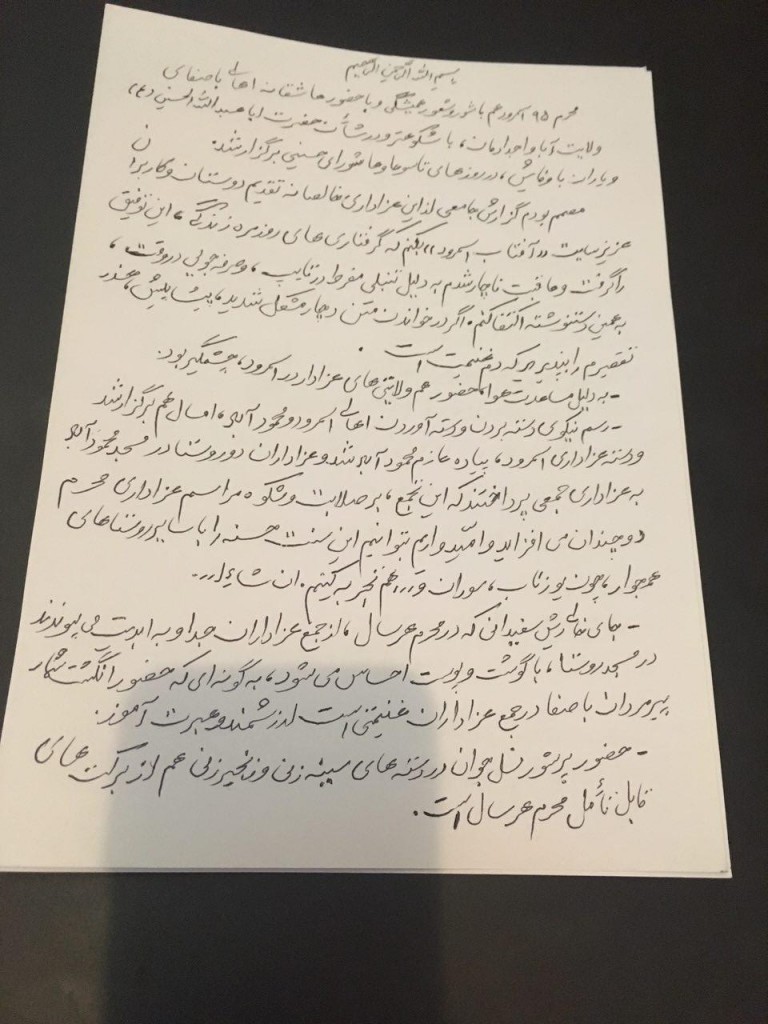 بسم الله الرحمن الرحیم
محرم ۹۵ اسرود هم با شور و شعور همیشگی و با حضور عاشقانه اهالی باصفای
ولایت آبا و اجدادمان، باشکوه تر و در شأن حضرت اباعبدالله الحسین (ع)
و یاران باوفایش، در روزهای تاسوعا و عاشورای حسینی برگزار شد.
مصمم بودم گزارش جامعی از این عزاداری خالصانه تقدیم دوستان و کاربران
عزیز سایت «آفتاب اسرود» بکنم که گرفتاری های روزمره زندگی، این توفیق
را گرفت و عاقبت ناچار شدم به دلیل تنبلی مفرط در تایپ، و صرفه جویی در وقت،
به همین دستنوشته اکتفا کنم. اگر در خواندن متن دچار مشکل شدید، پیشاپیش، عذر
تقصیرم را بپذیرید که دم غنیمت است.
- به دلیل مساعدت هوا، حضور هم ولایتی های عزادار در اسرود، چشمگیر بود.
- رسم نیکوی دسته بردن و دسته آوردن اهالی اسرود و محمودآباد، امسال هم برگزار شد
و دسته عزاداری اسرود، پیاده عازم محمودآباد شد و عزاداران دو روستا در مسجد محمودآباد
به عزاداری جمعی پرداختند که این تجمع، بر صلابت و شکوه مراسم عزاداری محرم
دوچندان می افزاید و امیدوارم بتوانیم این سنت حسنه را با سایر روستاهای
همجوار، چون یوزناب، سوران و... هم تجربه کنیم. ان شاءالله...
- جای خالی ریش سفیدانی که در محرم هر سال، از جمع عزاداران جدا و به ابدیت می پیوندند
در مسجد روستا، با گوشت و پوست احساس می شود، به گونه ای که حضور انگشت شمار
پیرمردان باصفا در جمع عزاداران غنیمتی است ارزشمند و عبرت آموز.
- حضور پرشور نسل جوان در دسته های سینه زنی و زنجیرزنی هم از برکت های
قابل تأمل محرم هر سال است.